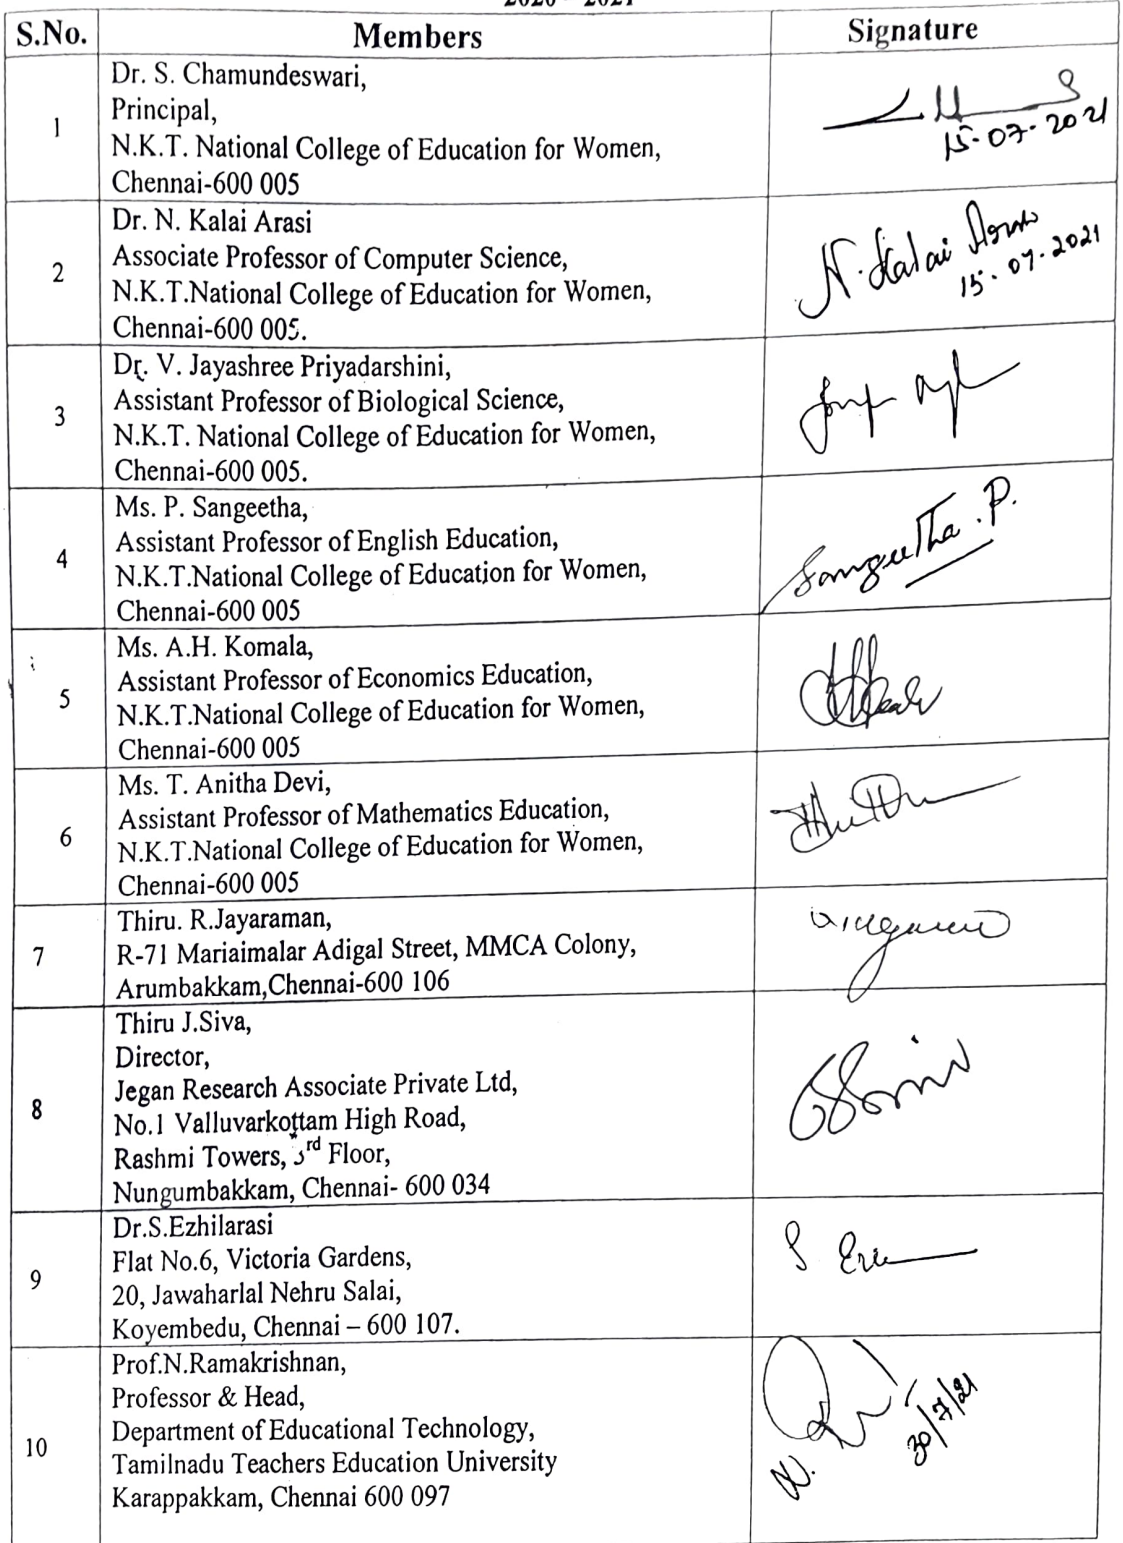 2020 - 2021
S.No.
Members
Signature
1
Dr. S. Chamundeswari,
Principal,
N.K.T. National College of Education for Women,
Chennai-600 005
15-07-2021
2
Dr. N. Kalai Arasi
Associate Professor of Computer Science,
N.K.T.National College of Education for Women,
Chennai-600 005.
N. Kalai Arasi
15.07.2021
3
Dr. V. Jayashree Priyadarshini,
Assistant Professor of Biological Science,
N.K.T. National College of Education for Women,
Chennai-600 005.
4
Ms. P. Sangeetha,
Assistant Professor of English Education,
N.K.T.National College of Education for Women,
Chennai-600 005
Sangeetha .P.
5
Ms. A.H. Komala,
Assistant Professor of Economics Education,
N.K.T.National College of Education for Women,
Chennai-600 005
6
Ms. T. Anitha Devi,
Assistant Professor of Mathematics Education,
N.K.T.National College of Education for Women,
Chennai-600 005
7
Thiru. R.Jayaraman,
R-71 Mariaimalar Adigal Street, MMCA Colony,
Arumbakkam,Chennai-600 106
8
Thiru J.Siva,
Director,
Jegan Research Associate Private Ltd,
No.1 Valluvarkottam High Road,
Rashmi Towers, 3rd Floor,
Nungumbakkam, Chennai- 600 034
9
Dr.S.Ezhilarasi
Flat No.6, Victoria Gardens,
20, Jawaharlal Nehru Salai,
Koyembedu, Chennai – 600 107.
10
Prof.N.Ramakrishnan,
Professor & Head,
Department of Educational Technology,
Tamilnadu Teachers Education University
Karappakkam, Chennai 600 097
30/7/21